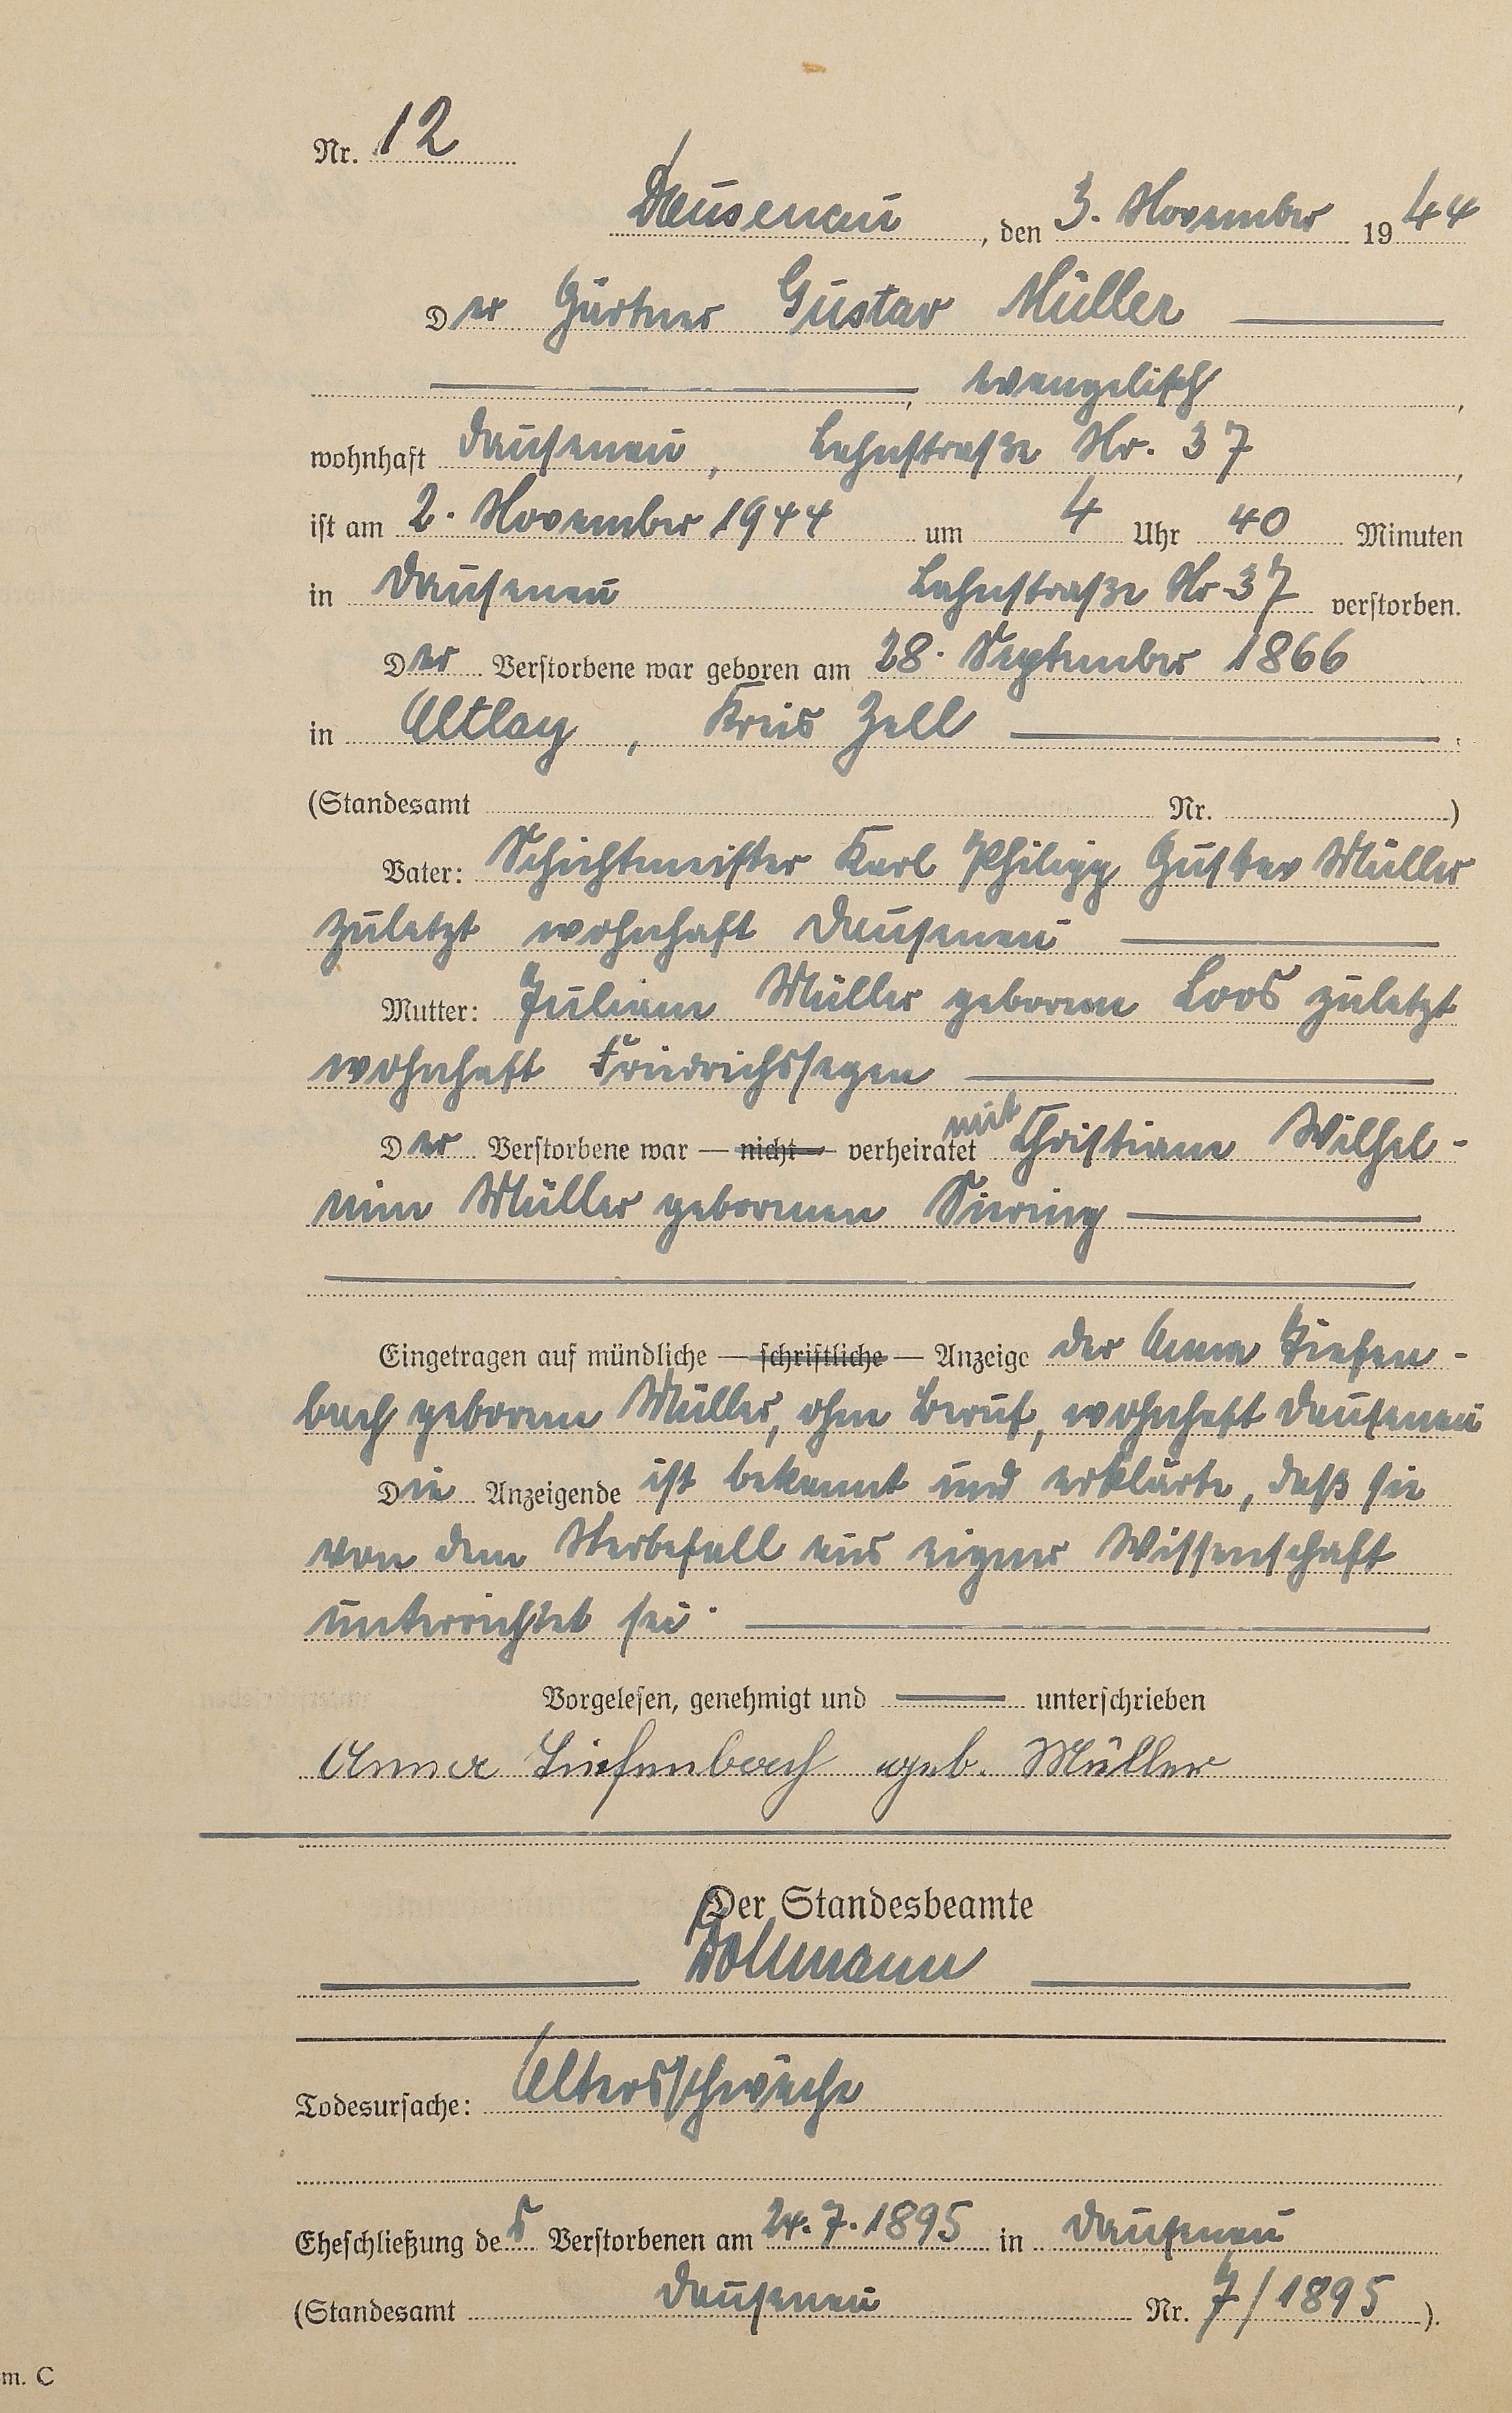 Nr. 12
Dausenau, den 3. November 1944
Der Gärtner Gustav Müller
, evangelisch,
wohnhaft Dausenau, Lahnstraße Nr. 37,
ist am 2. November 1944 um 4 Uhr 40 Minuten
in Dausenau Lahnstraße Nr 37 verstorben.
Der Verstorbene war geboren am 28. September 1866
in Altlay, Kreis Zell.
(Standesamt Nr. )
Vater: Schichtmeister Karl Philipp Gustav Müller
zuletzt wohnhaft Dausenau
Mutter: Juliane Müller geborene Loos zuletzt
wohnhaft Friedrichssegen
Der Verstorbene war — nicht — verheiratet mit Christiane Wilhel-
mine Müller geborenen
Eingetragen auf mündliche — schriftliche — Anzeige der Anna Tiefen-
bach geborene Müller, ohne Beruf, wohnhaft Dausenau
Die Anzeigende ist bekannt und erklärte, daß sie
von dem Sterbefall aus eigner Wissenschaft
unterrichtet sei.
Vorgelesen, genehmigt und unterschrieben
Anna Tiefenbach geb. Müller
Der Standesbeamte
Todesursache: Altersschwäche
Eheschließung des Verstorbenen am 24.7.1895 in Dausenau
(Standesamt Dausenau Nr. 7/1895).
m. C